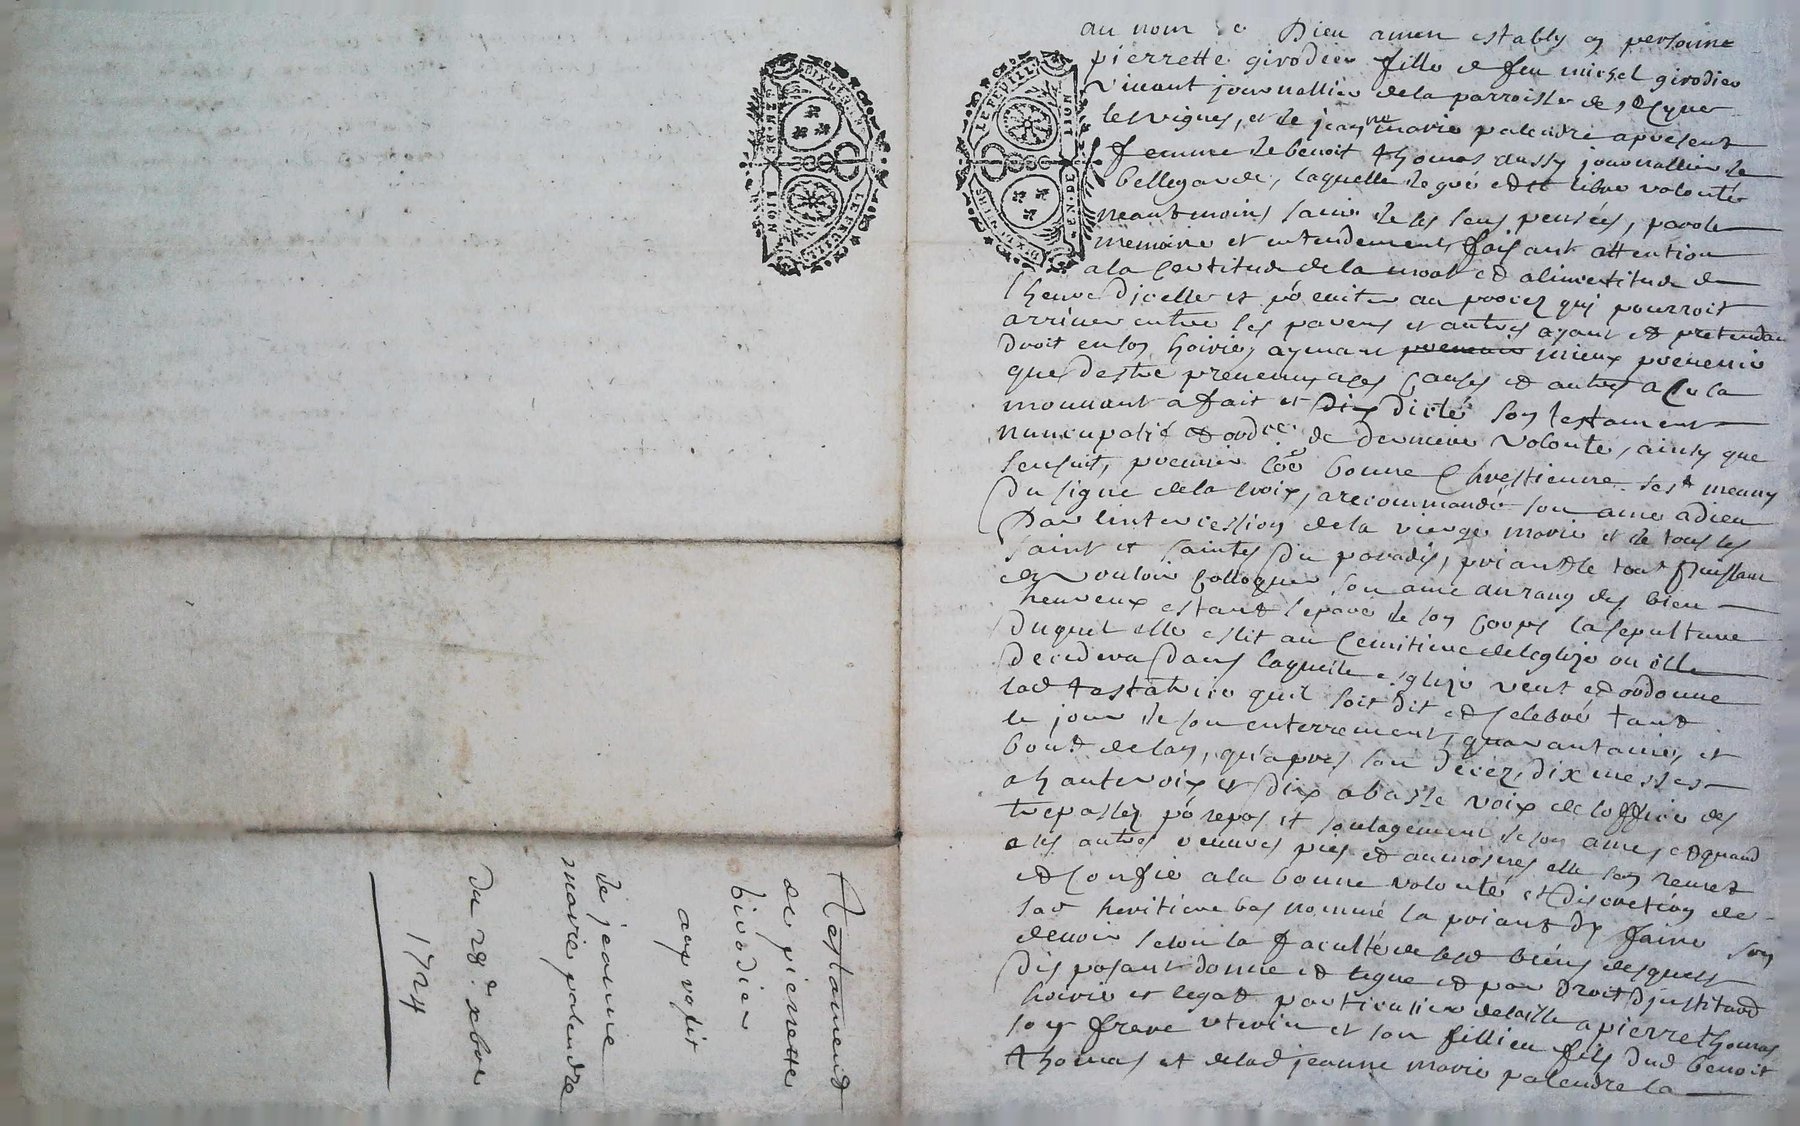 au nom de Dieu amen estably en personne
pierrette girodier fille de feu michel girodier
vivant journallier de la parroisse de st Cyr
les vignes, et de jeanne marie palandre apresent
femme de benoit thomas aussy journallier de
bellegarde, laquelle de gré et libre volonté
neantmoins saine de ses sens pensées, parole
memoire et entendement faisant attention
a la certitude de la mort et a lincertitude de
lheure dicelle et po eviter au procez qui pourroit
arriver entre ses parens et autres ayant et pretendant
droit en son hoirie, aymant mieux prevenir
que destre prevenue a ces causes et autres a ce la
mouvant a fait et dicté son testament
nuncupatif et ordce de derniere volonte, ainsy que
sensuit, premier coe bonne Chrestienne sest munye
du signe de la croix, a recommandé son ame a dieu
par lintercession de la vierge marie et de tous les
saint et saintes du paradis, priant le tout puissant
de vouloir colloquer son ame au rang des bien
heureux estant separé de son corps la sepulture
duquel elle eslit au cemitiere de leglize ou elle
decedera dans laquelle esglize veut et ordonne
lad testatrice quil soit dit et celebré tant
le jour de son enterrement, quarantaine, et
bout de lan, qu'apres son decez, dix messes
a haute voix et dix a basse voix de loffice des
trepassez po repos et soulagement de son ame, et quand
a ses autres oeuvres pies et aumosnes elle sen remet
et confie a la bonne volonté et discretion de
sad heritiere bas nommé la priant dy faire son
devoir selon la faculté de sesd biens desquels
disposant donne et legue et par droit dinstitaon
hoirie et legat particulier delaisse a pierre thomas
son frere uterin et son fillieu fils dud benoit
thomas et de lad jeanne marie palandre la
LEFEVILLE
DIXUIERS
EN·DE LION
GENDE LION
DIX
Testament
de pierrette
girodier
au profit
de jeanne
marie palandre
du 28e xbre
1724